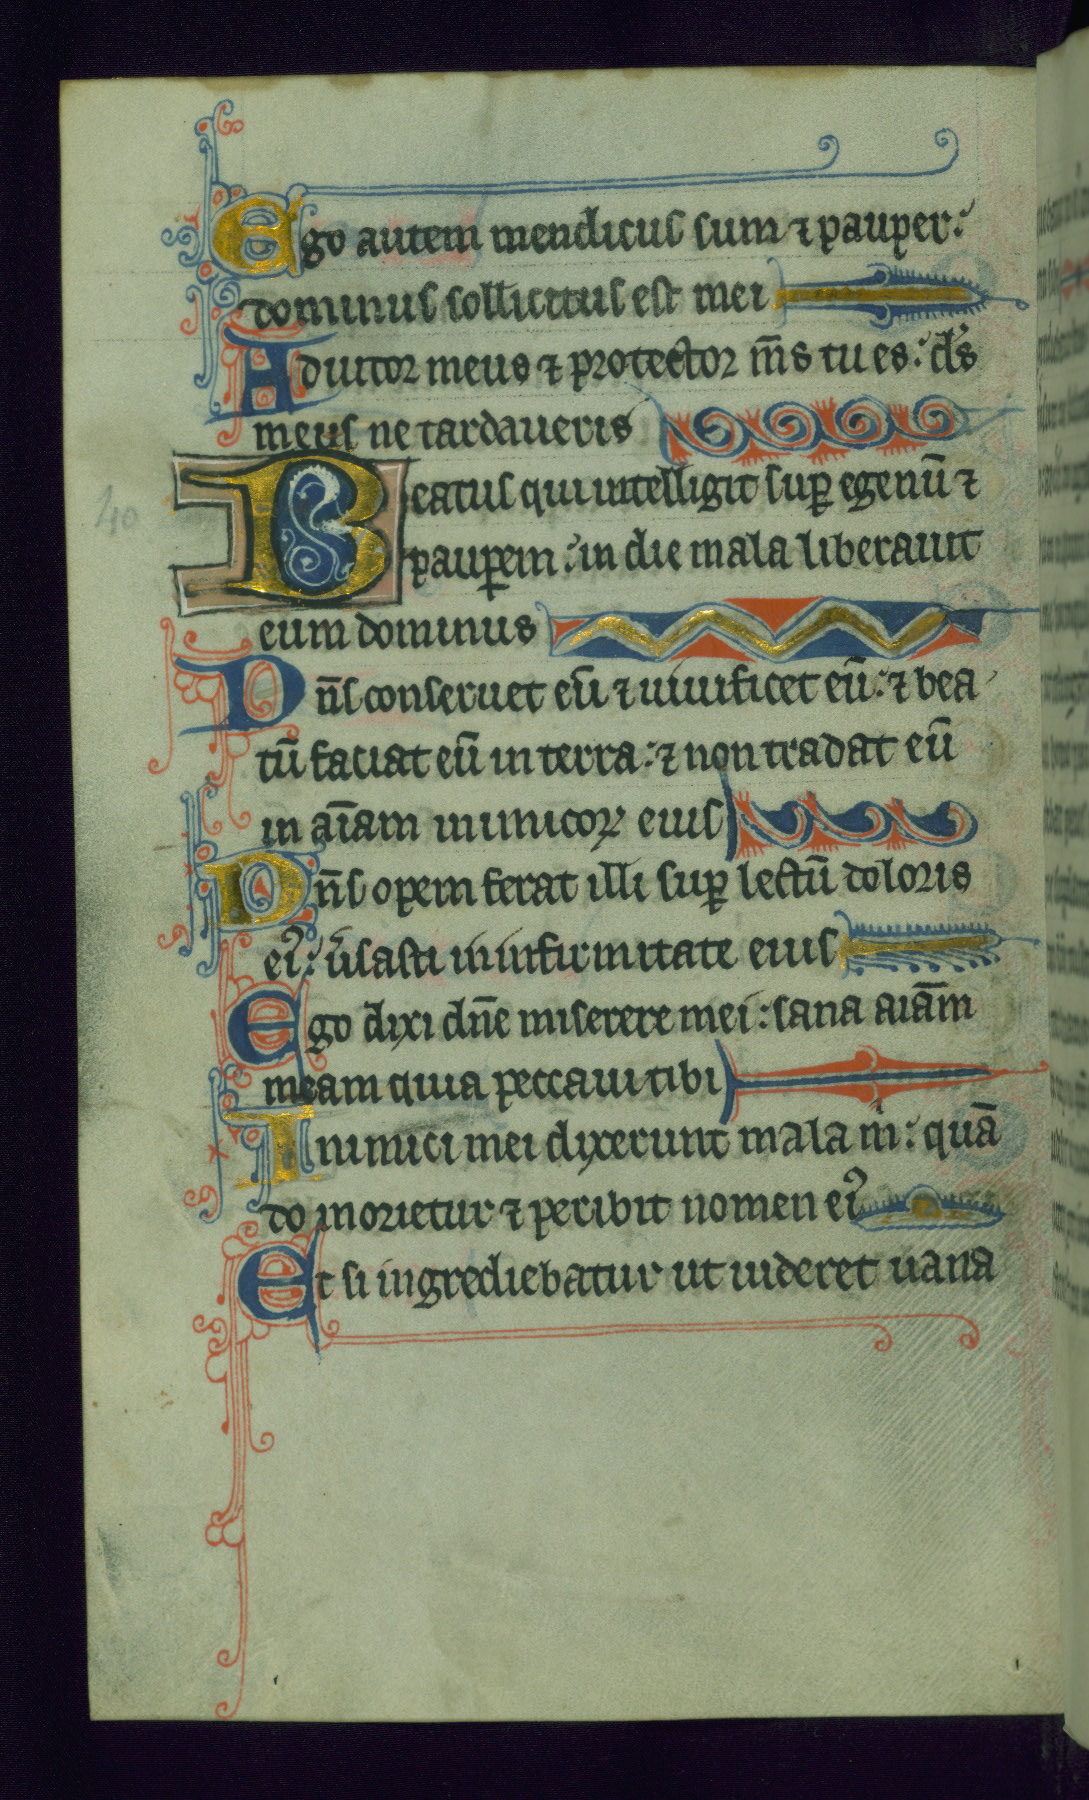 Ego autem mendicus sum ⁊ pauper:
dominus sollicitus est mei
Adiutor meus ⁊ protector m̄s tu es: d̄s
meus ne tardaueris
40
Beatus qui intelligit suꝑ egenū ⁊
pauꝑem: in die mala liberauit
eum dominus
Dn̄s conseruet eū ⁊ uiuificet eū: ⁊ bea
tū faciat eū in terra: ⁊ non tradat eū
in aīam inimicoꝝ eius
Dn̄s opem ferat illi suꝑ lectū doloris
eiꝰ: ūsasti in infirmitate eius
Ego dixi dn̄e miserere mei: sana aiām
meam quia peccaui tibi
Inimici mei dixerunt mala m̍: quā
do morietur ⁊ peribit nomen eiꝰ
Et si ingrediebatur ut uideret uana